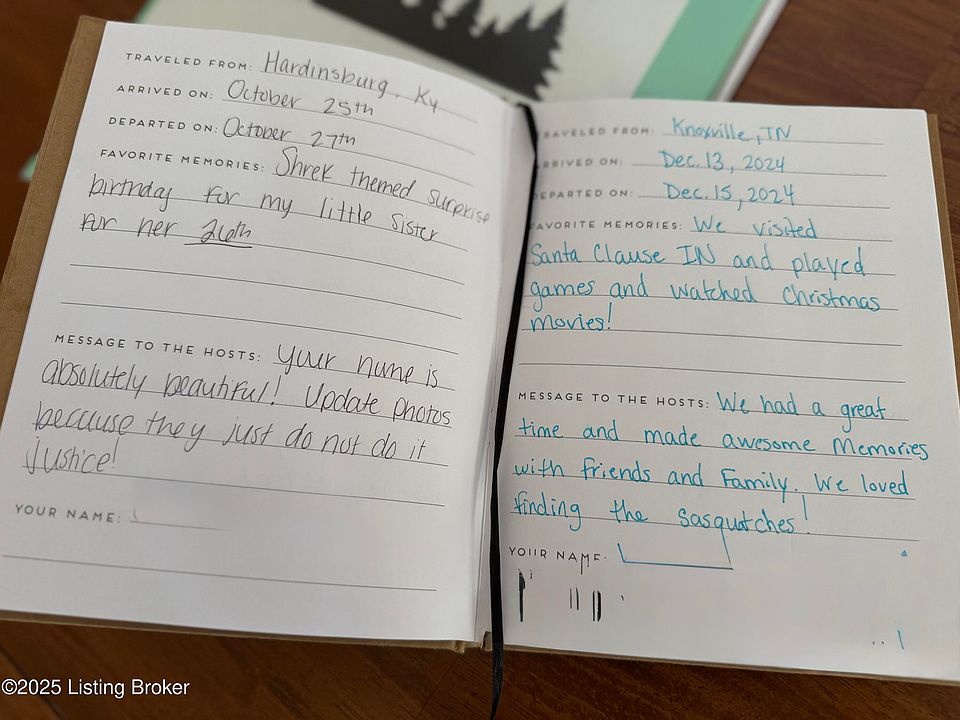 TRAVELED FROM: Hardinsburg, Ky
ARRIVED ON: October 25th
DEPARTED ON: October 27th
FAVORITE MEMORIES: Shrek themed surprise
birthday for my little sister
for her 26th
MESSAGE TO THE HOSTS: Your home is
absolutely beautiful! Update photos
because they just do not do it
justice!
YOUR NAME:
TRAVELED FROM: Knoxville, TN
ARRIVED ON: Dec. 13, 2024
DEPARTED ON: Dec. 15, 2024
FAVORITE MEMORIES: We visited
Santa Clause IN and played
games and watched Christmas
movies!
MESSAGE TO THE HOSTS: We had a great
time and made awesome Memories
with friends and Family. We loved
finding the Sasquatches!
YOUR NAME:
©2025 Listing Broker